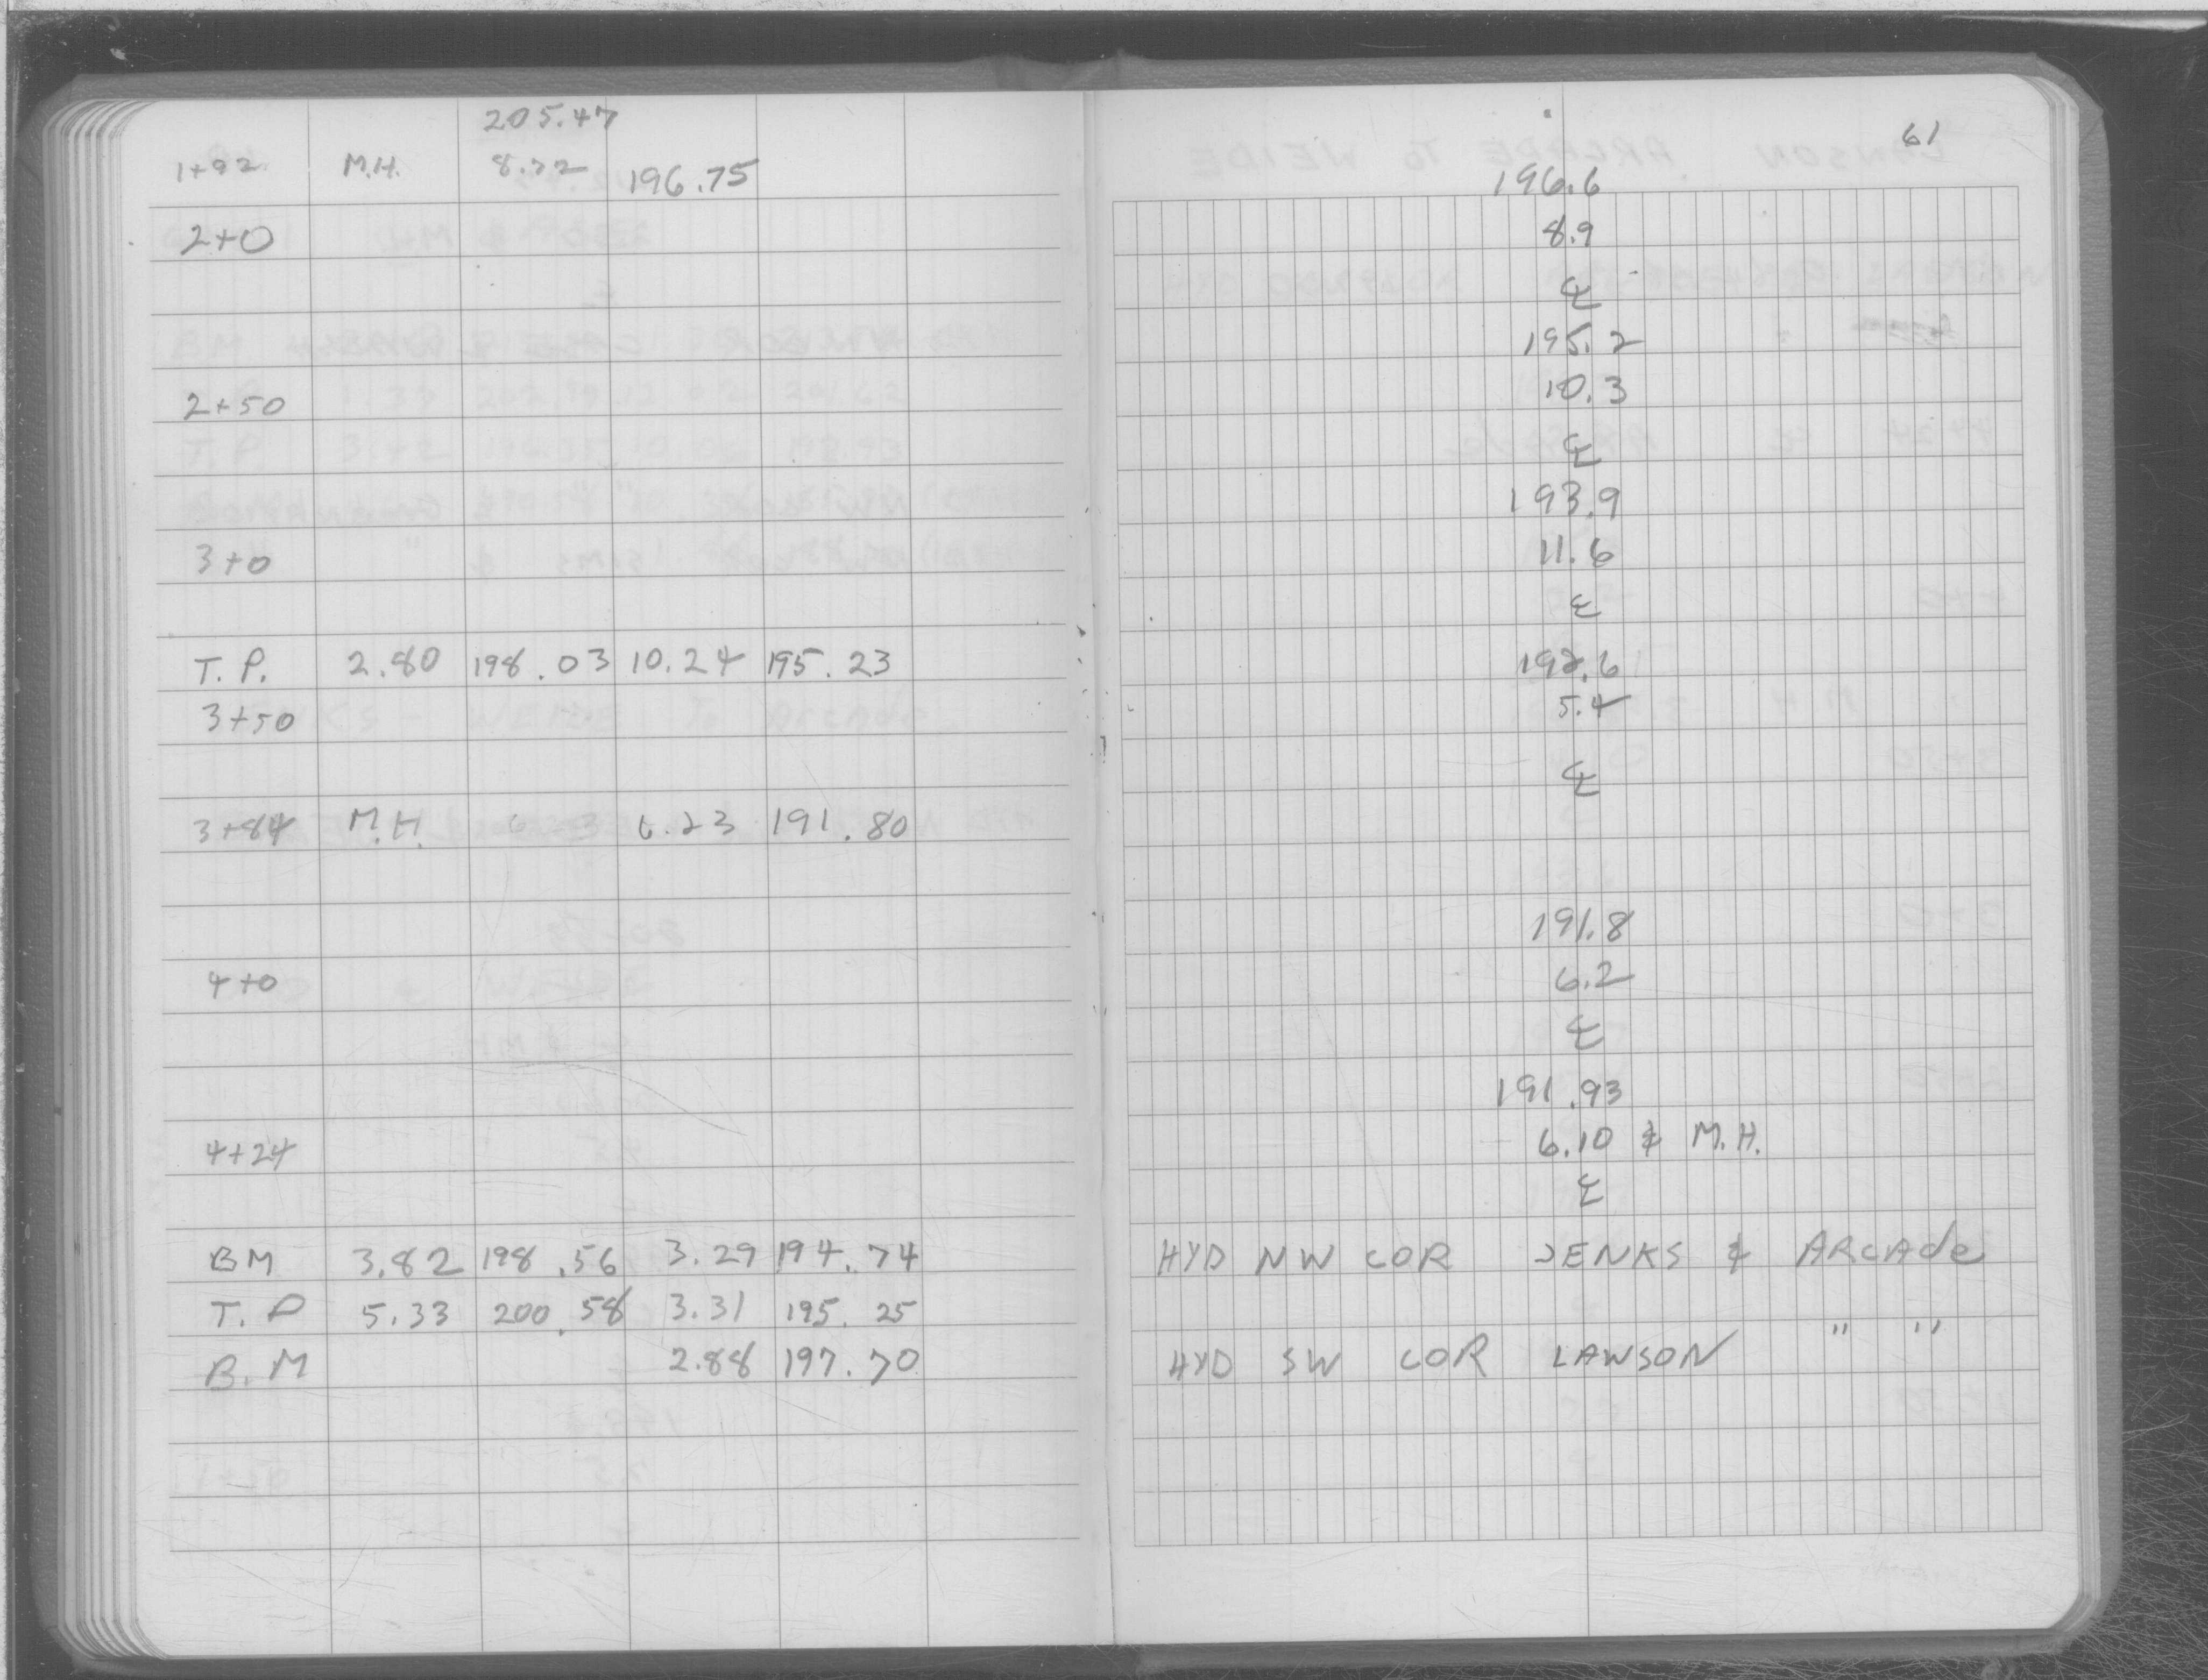 205.47
61
1+92 M.H. 8.72 196.75 196.6
2+0 8.9
℄
195.2
2+50 10.3
℄
193.9
3+0 11.6
℄
T.P. 2.80 198.03 10.24 195.23 192.6
3+50 5.4
℄
3+84 M.H. 6.23 191.80
191.8
4+0 6.2
℄
191.93
4+24 6.10 & M.H.
℄
BM 3.82 198.56 3.29 194.74 HYD NW COR JENKS & ARCADE
T.P 5.33 200.58 3.31 195.25
B.M 2.88 197.70 HYD SW COR LAWSON " "